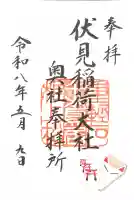 奉拝
伏見稲荷大社
奥社奉拝所
令和八年五月九日